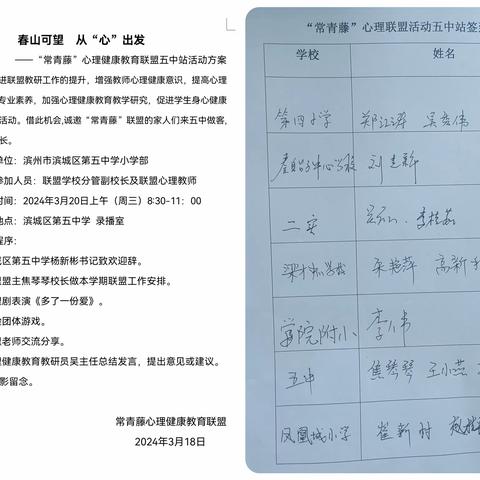 春山可望 从“心”出发
——“常青藤”心理健康教育联盟五中站活动方案
进联盟教研工作的提升，增强教师心理健康意识，提高心理
专业素养，加强心理健康教育教学研究，促进学生身心健康
活动。借此机会,诚邀“常青藤”联盟的家人们来五中做客，
长。
单位：滨州市滨城区第五中学小学部
参加人员：联盟学校分管副校长及联盟心理教师
时间：2024年3月20日上午（周三）8:30-11：00
地点：滨城区第五中学 录播室
程序：
城区第五中学杨新彬书记致欢迎辞。
盟主焦琴琴校长做本学期联盟工作安排。
理剧表演《多了一份爱》。
团体游戏。
老师交流分享。
理健康教育教研员吴主任总结发言，提出意见或建议。
影留念。
常青藤心理健康教育联盟
2024年3月18日
“常青藤”心理联盟活动五中站签
学校 姓名
第四小学 郑江涛 吴俊伟
秦皇台中心学校 刘志新
二实 李桂茹
梁才中心学校 宋艳萍 高新
学院附小 李伟
五中 焦琴琴 王小燕
凤凰城小学 崔新村